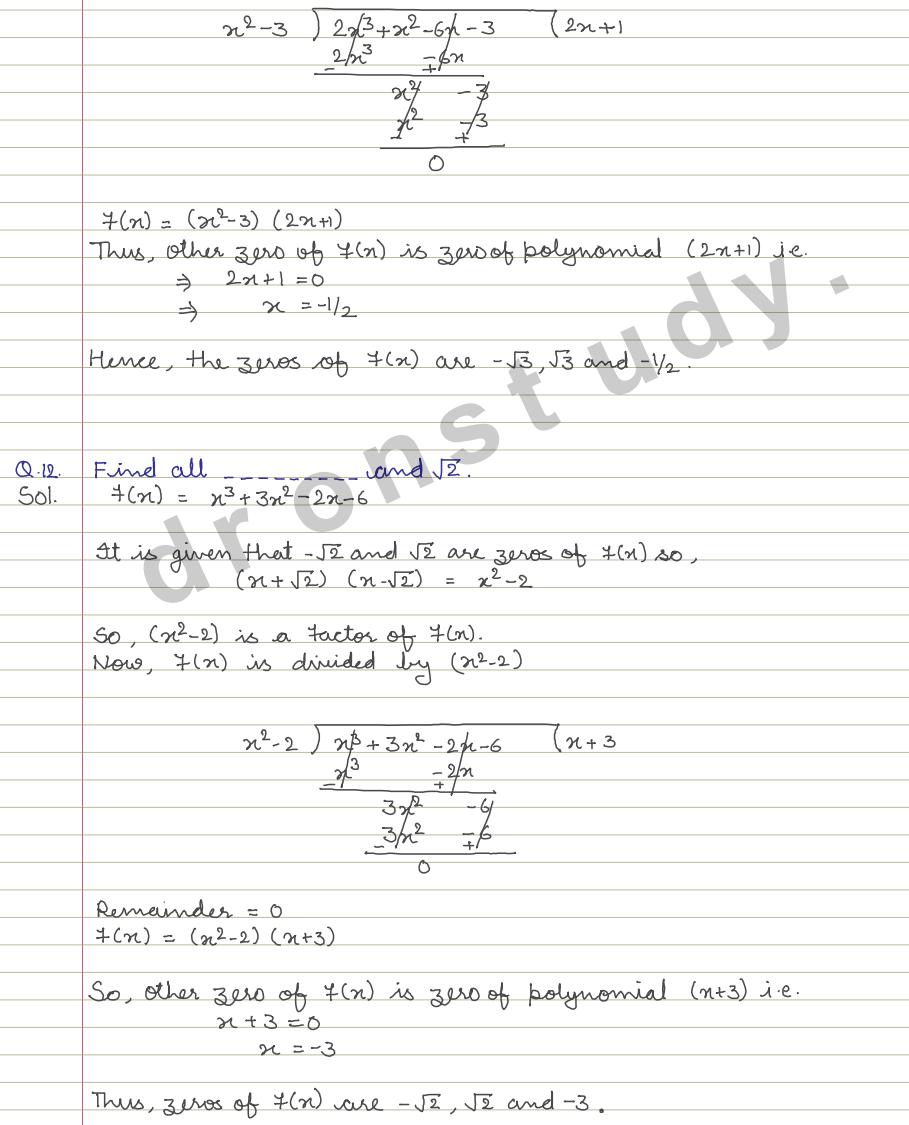 x²-3 ) 2x³+x²-6x-3 ( 2x+1
2x³ -6x
- +
x² -3
x² -3
- +
0
f(x) = (x²-3) (2x+1)
Thus, other zero of f(x) is zero of polynomial (2x+1) i.e.
⇒ 2x+1 = 0
⇒ x = -1/2
Hence, the zeros of f(x) are -√3, √3 and -1/2.
Q.12. Find all _ _ _ _ _ _ _ _ _ and √2.
Sol. f(x) = x³+3x²-2x-6
It is given that -√2 and √2 are zeros of f(x) so,
(x+√2) (x-√2) = x²-2
So, (x²-2) is a factor of f(x).
Now, f(x) is divided by (x²-2)
x²-2 ) x³+3x²-2x-6 ( x+3
x³ -2x
- +
3x² -6
3x² -6
- +
0
Remainder = 0
f(x) = (x²-2) (x+3)
So, other zero of f(x) is zero of polynomial (x+3) i.e.
x+3 = 0
x = -3
Thus, zeros of f(x) are -√2, √2 and -3.
dronstudy.